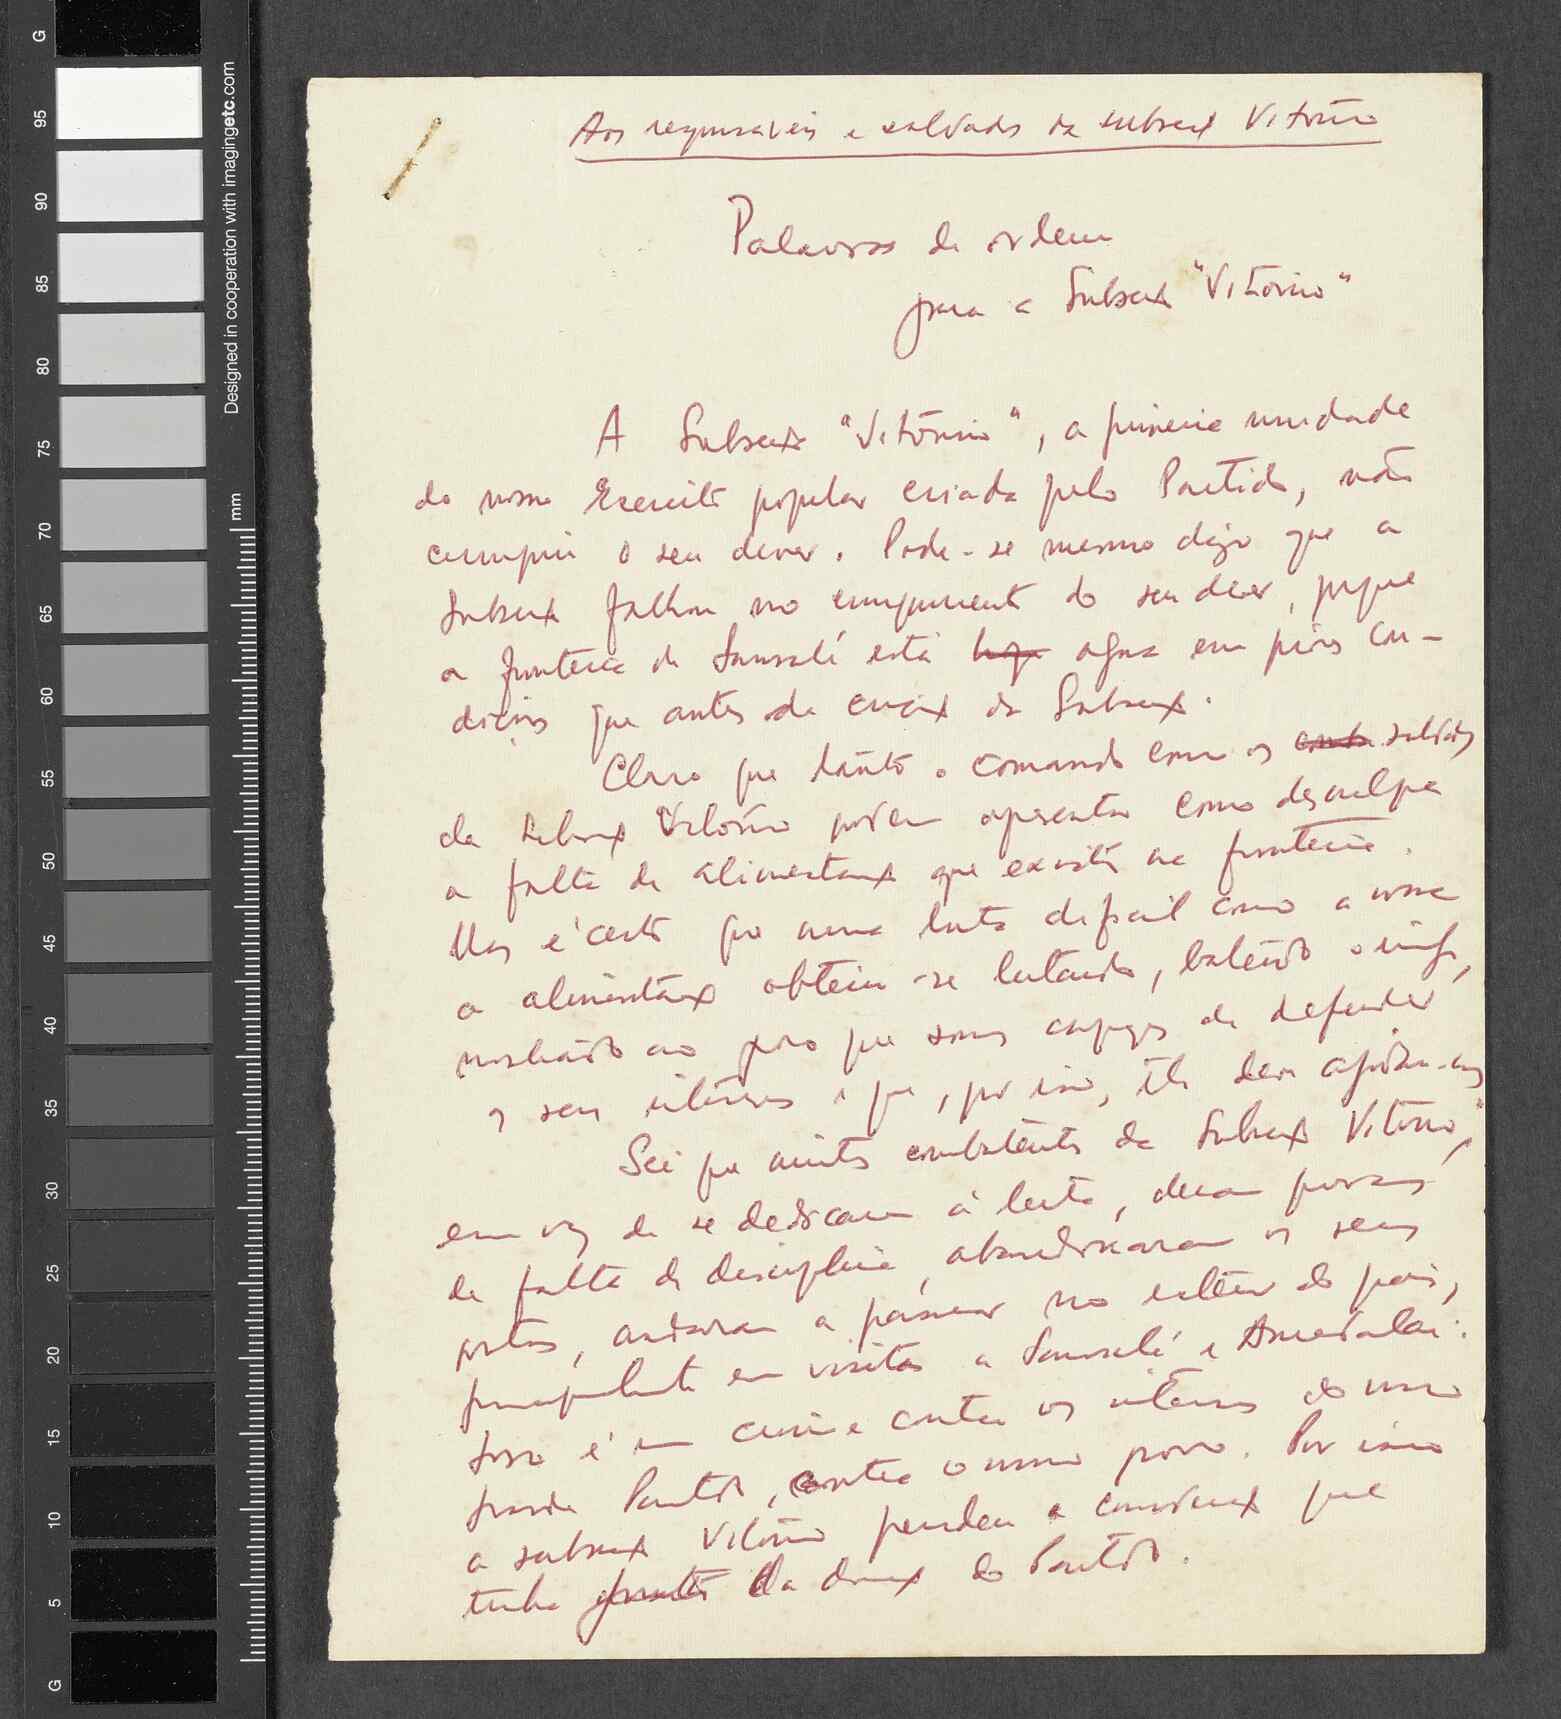 Aos responsáveis e soldados da subsecção Vitório
Palavras de ordem
para a Subsecção "Vitório"
A Subsecção "Vitório", a primeira unidade
do nosso Exercito popular criada pelo Partido, não
cumpriu o seu dever. Pode-se mesmo dizer que a
Subsecção falhou no cumprimento do seu dever, porque
a fronteira de Sansalé está hoje agora em piores con-
dições que antes da criação da Subsecção.
Claro que tanto o comando como os soldados
da Subsecção Vitório podem apresentar como desculpa
a falta de alimentação que existe na fronteira.
Mas é certo que numa luta dificil como a nossa
a alimentação obtem-se lutando, batendo o inimigo,
mostrando ao povo que somos capazes de defender
os seus interesses e que, por isso, ele deve ajudar-nos
Sei que muitos combatentes da Subsecção Vitório,
em vez de se dedicarem à luta, deram provas
de falta de disciplina, abandonaram os seus
postos, andaram a passear no interior do país,
principalmente em visitas a Sansalé e
Isso é um crime contra os interesses do nosso
grande Partido, contra o nosso povo. Por isso
a subsecção Vitório perdeu a confiança que
tinha da direcção do Partido.
G
95
90
85
80
75
70
65
60
55
50
45
40
35
30
25
20
15
10
5
G
Designed in cooperation with imagingetc.com
mm